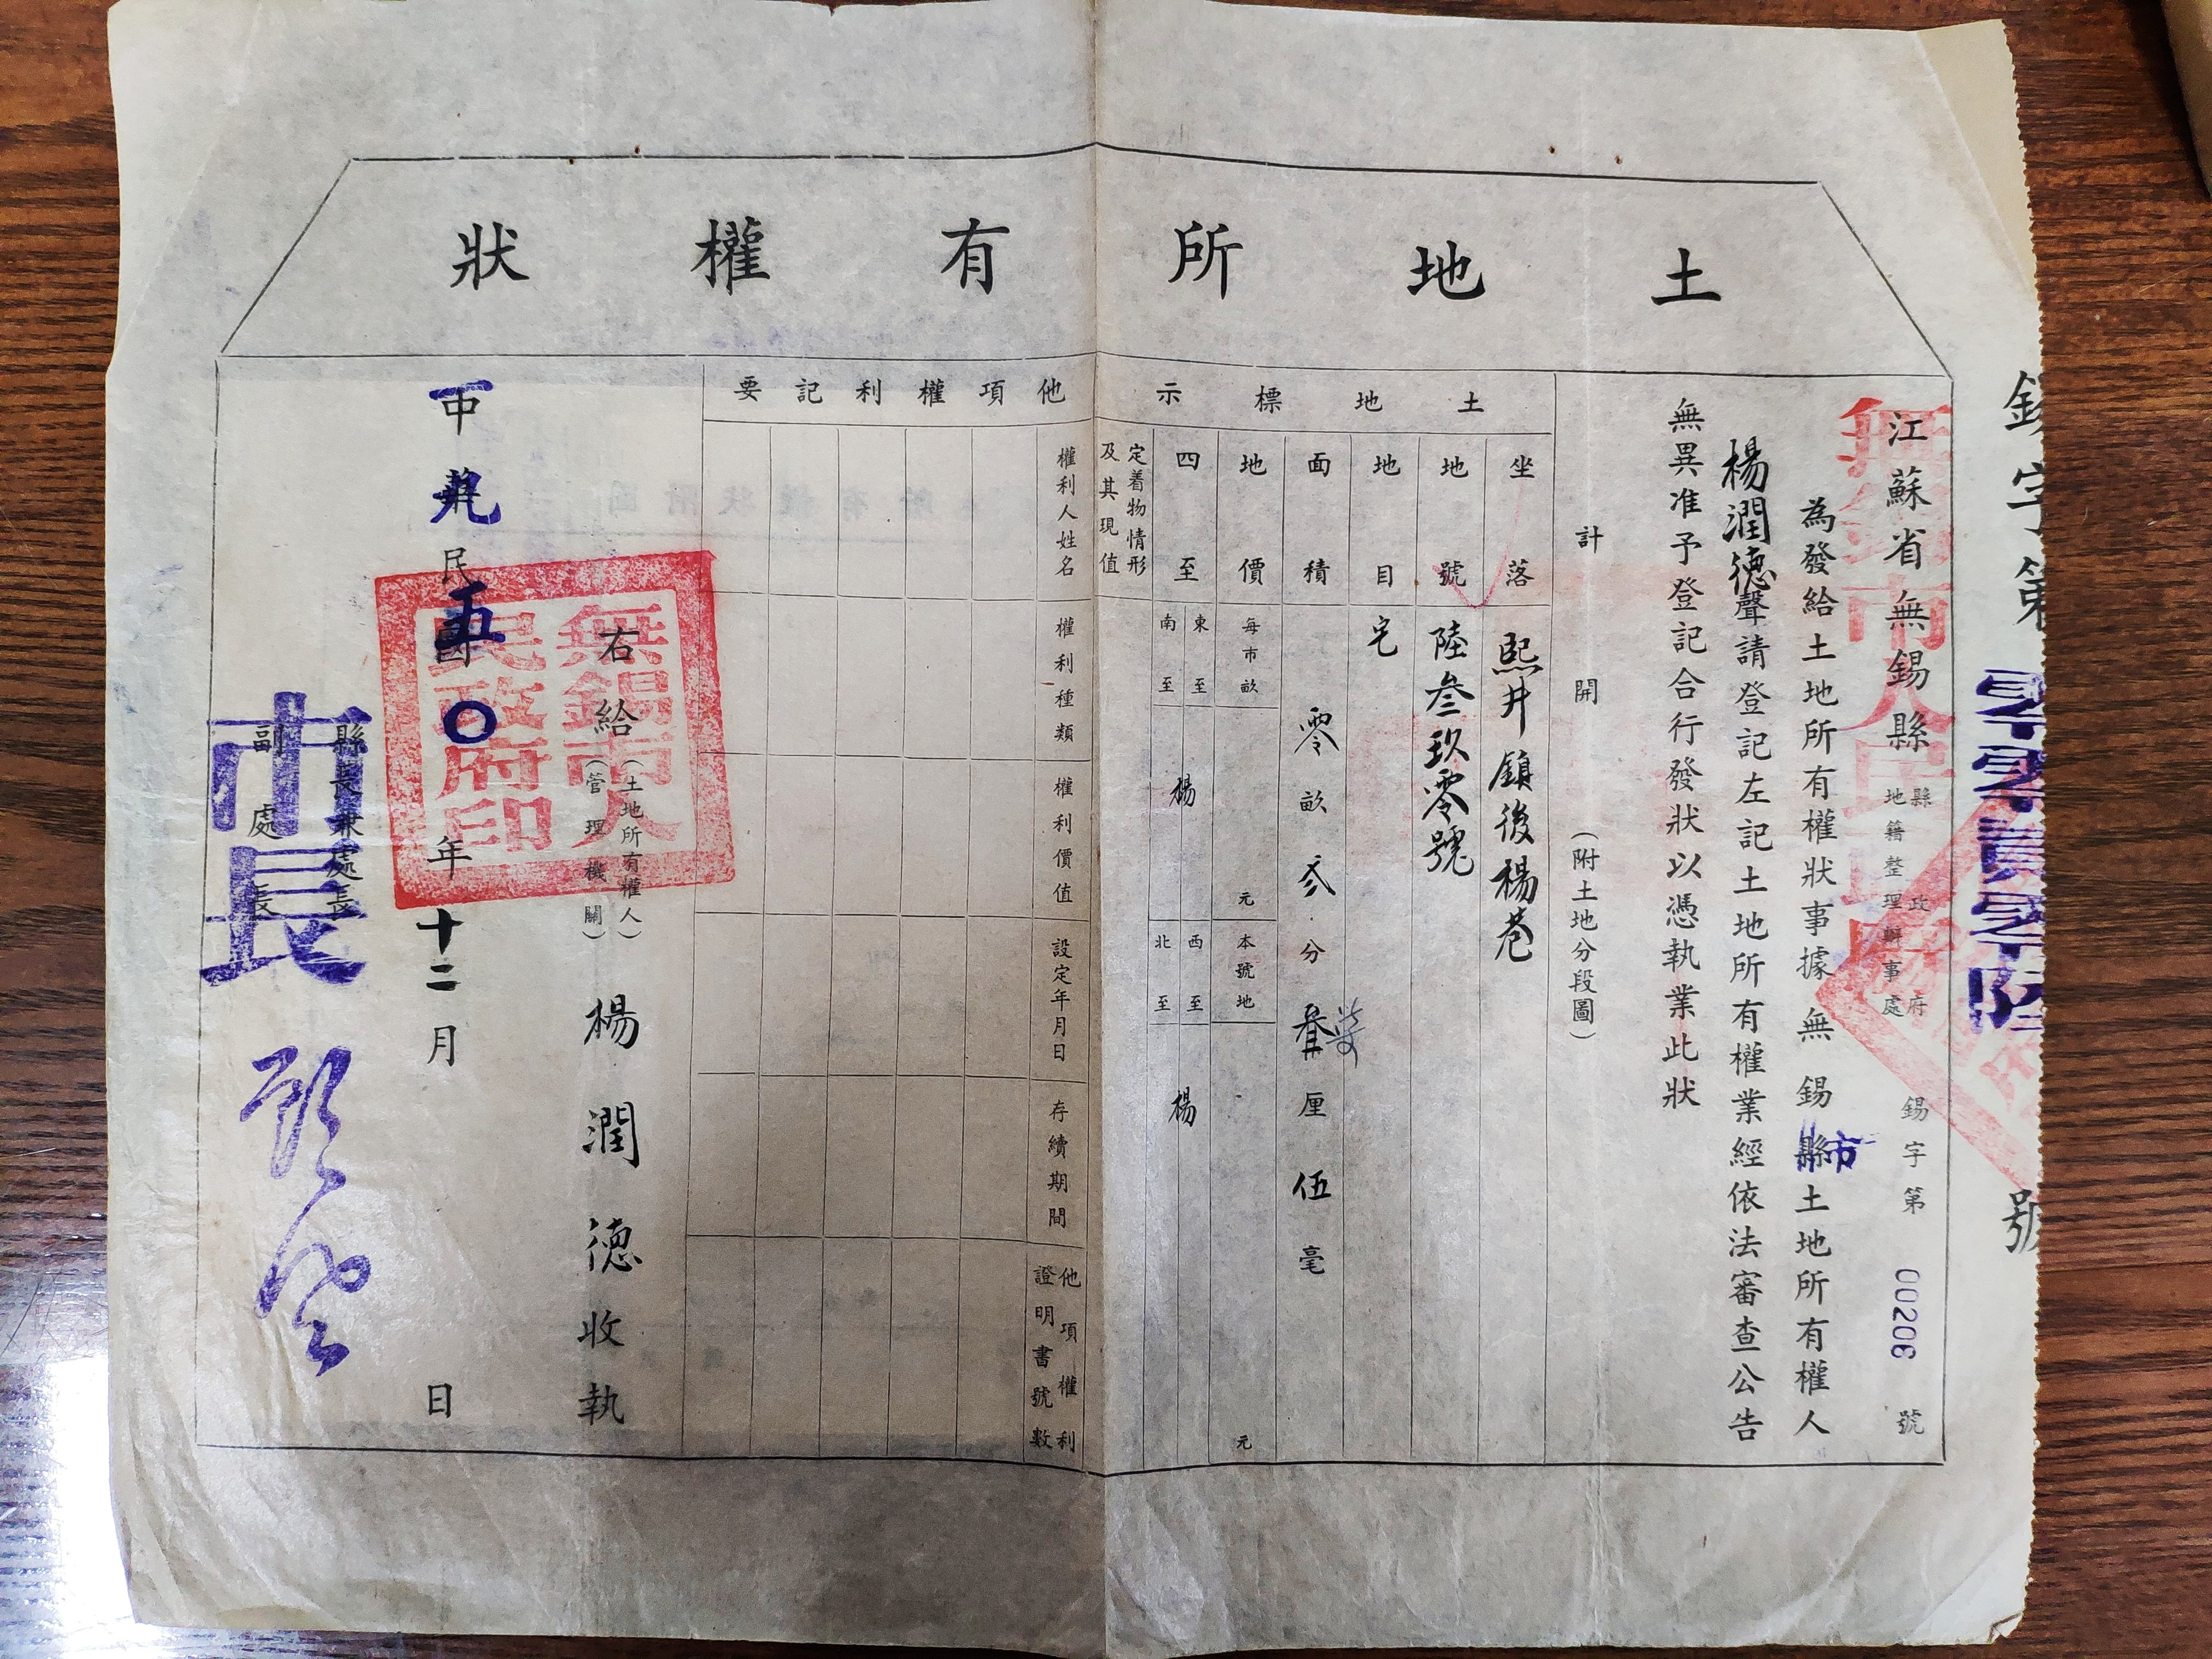 土地所有權狀
錫字第零零貳零陸號
江蘇省無錫縣
縣政府
地籍整理辦事處
錫字第00206號
為發給土地所有權狀事據無錫縣土地所有權人
市
楊潤德聲請登記左記土地所有權業經依法審查公告
無異准予登記合行發狀以憑執業此狀
計開（附土地分段圖）
土地標示
坐落
熙井鎮後楊巷
地號
陸叁玖零號
地目
宅
面積
零畝弍分厘伍毫
地價
每市畝
元
本號地
元
四至
東至
南至
楊
西至
北至
楊
定着物情形
及其現值
他項權利記要
權利人姓名
權利種類
權利價值
設定年月日
存續期間
他項權利
證明書號數
右給
（土地所有權人）
（管理機關）
楊潤德收執
無錫市人
民政府印
中華民國年十二月日
一九五〇
縣長兼處長
副處長
市長